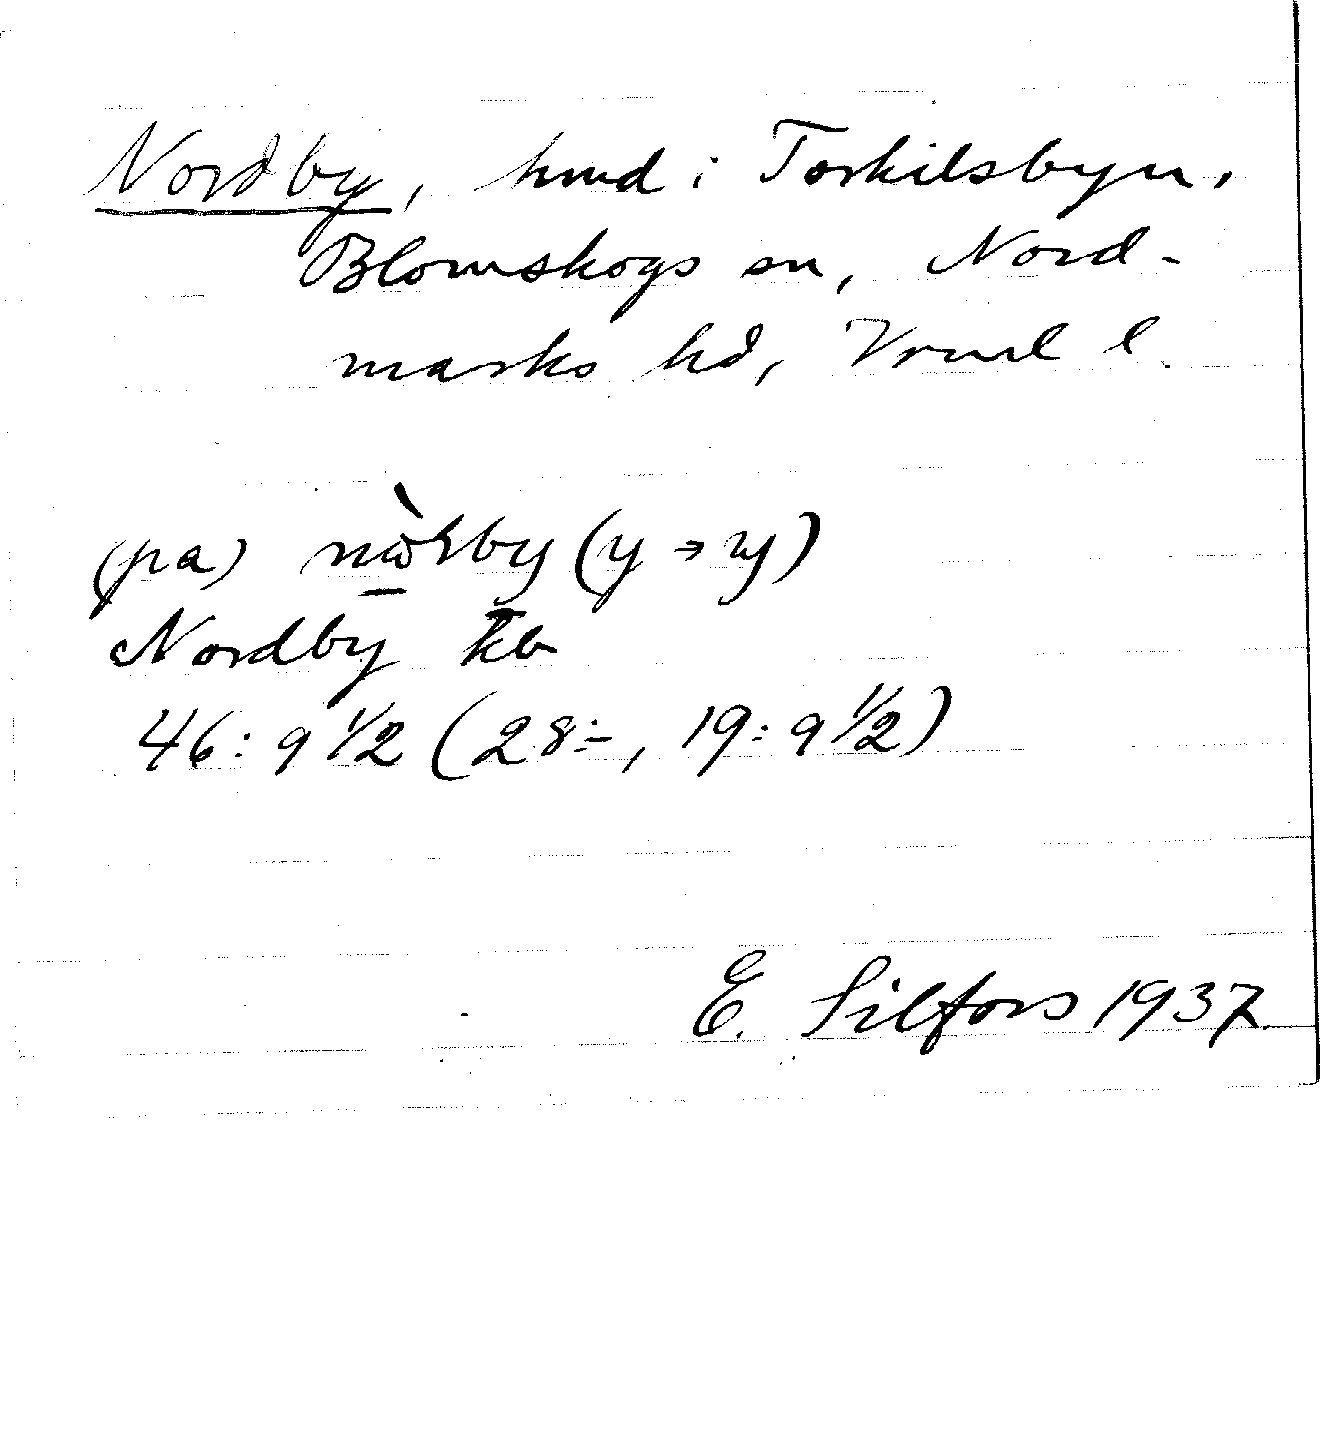 Nordby, hmd i Torkilsbyn,
Blomskogs sn, Nord-
marks hd, Vrml l.
(pa) nὼrby (y → y)
Nordby kb
46: 9 1/2 (28:-, 19: 9 1/2)
E. Silfors 1937